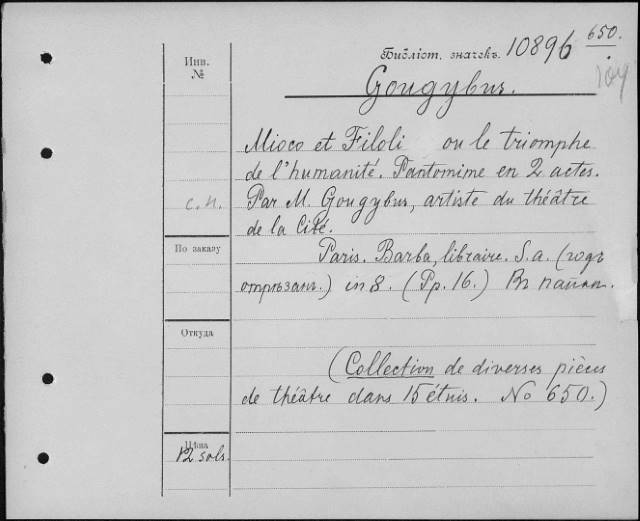 650.
Инв. №
Библіот. значекъ. 10896
Gougybus.
Mioco et Filoli ou le triomphe
de l'humanité. Pantomime en 2 actes.
Par M. Gougybus, artiste du théâtre
с.н.
de la Cité.
По заказу
Paris. Barba, libraire. S.a. (годъ
отрѣзанъ.) in 8. (Pp. 16.) Въ папкѣ.
Откуда
(Collection de diverses pièces
de théâtre dans 15 étuis. No 650.)
Цѣна
12 sols.